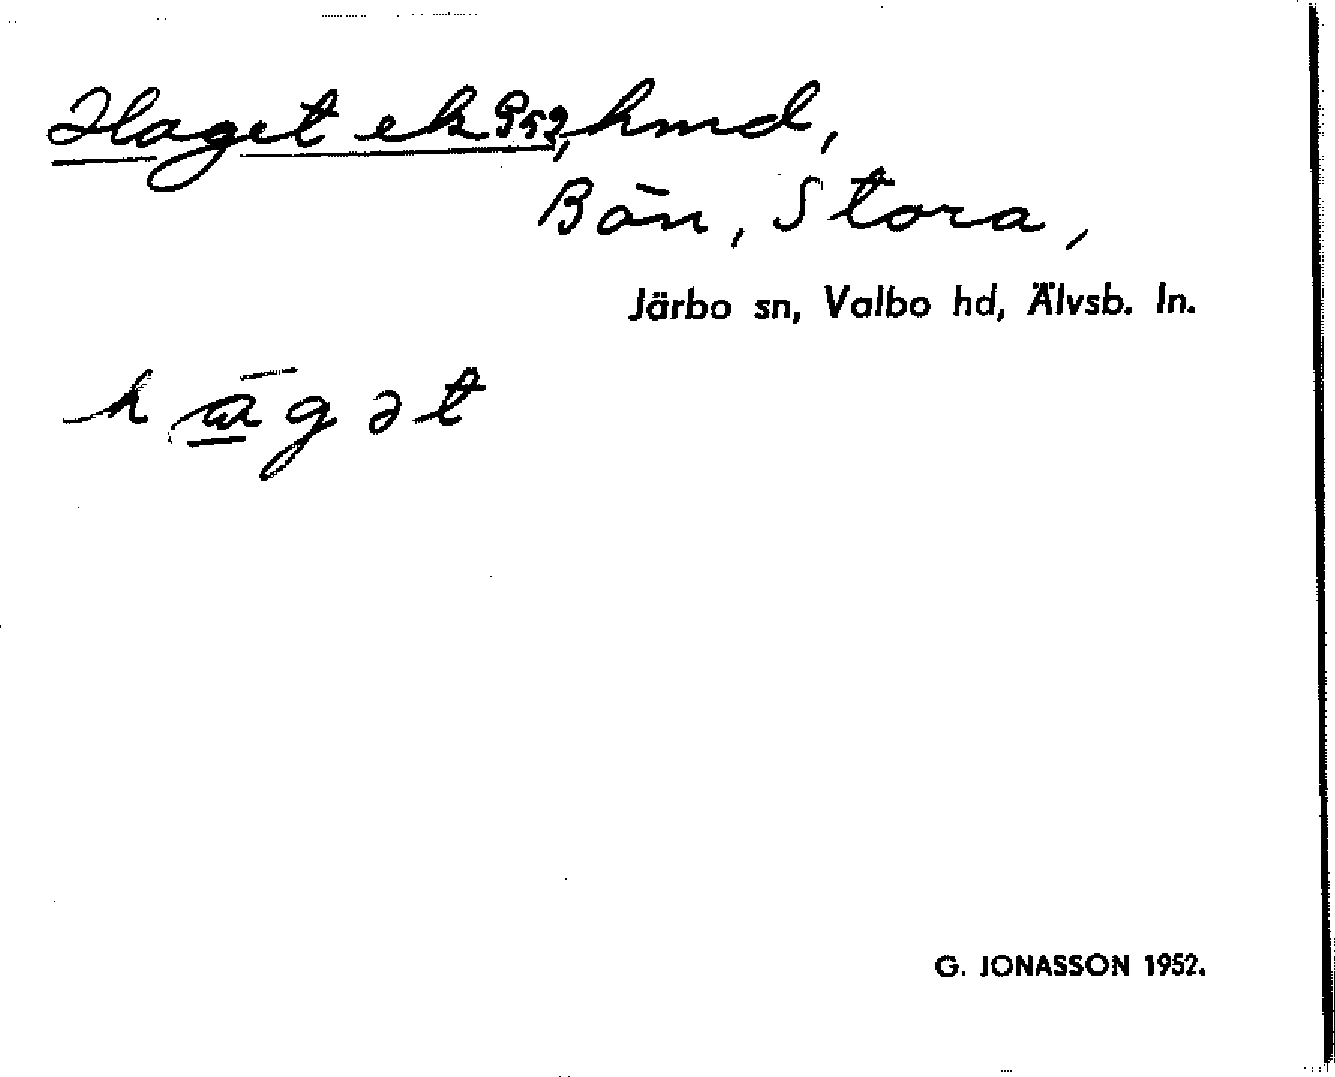 Haget ek 952, hmd,
Bön, Stora,
Järbo sn, Valbo hd, Älvsb. ln.
hāgət
G. JONASSON 1952.